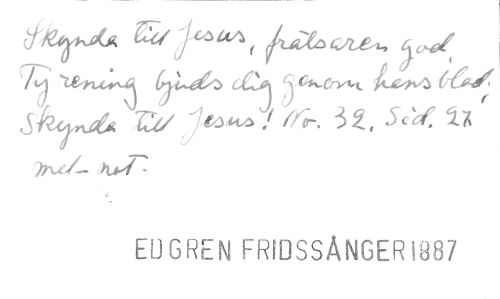 Skynda till Jesus, frälsaren god,
Ty rening bjuds dig genom hans blod;
Skynda till Jesus! No. 32. Sid. 27.
mel-not.
EDGREN FRIDSSÅNGER 1887